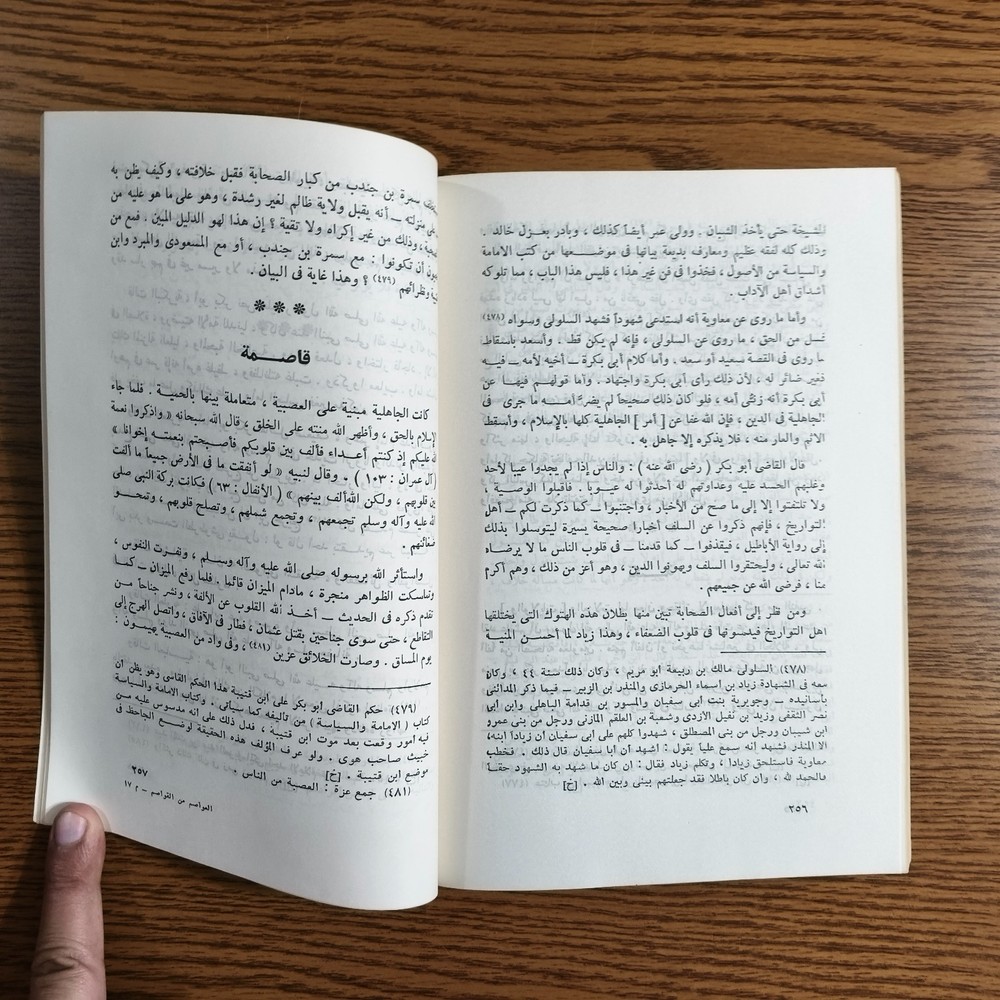 المشيخة حتى يأخذ الشبان . وولى عمر أيضاً كذلك ، وبادر بعزل خالد .
وذلك كله لفقه عظيم ومعارف بديعة بيانها في موضعها من كتب الامامة
والسياسة من الأصول ، فخذوا فى فن غير هذا ، فليس هذا الباب ، مما تلوكه
أشداق أهل الآداب .
وأما ما روى عن معاوية أنه استدعى شهوداً فشهد السلولى وسواه (٤٧٨)
من الحق ، ما روى عن السلولى ، فإنه لم يكن قط . وأسعد بأسقاط
ما روى فى القصة سعيد أو سعد . وأما كلام أبى بكرة ــ أخيه لأمه ــ فيــه
فغير ضائر له ، لأن ذلك رأى أبى بكرة واجتهاد . وأما قولهم فيها عن
أبى بكرة أنه زنتى أمه ، فلو كان ذلك صحيحاً لم يضر أمــه ما جرى فى
الجاهلية فى الدين ، فإن الله عفا عن [ أمر ] الجاهلية كلها بالإسلام ، وأسقط
الاثم والعار منه ، فلا يذكره إلا جاهل به .
قال القاضى أبو بكر ( رضى الله عنه ) : والناس إذا لم يجدوا عيبا لأحد
وغلبهم الحسد عليه وعداوتهم له أحدثوا له عيــوبا . فاقبلوا الوصية ،
ولا تلتفتوا إلا إلى ما صح من الأخبار ، واجتنبوا ــ كما ذكرت لكم ــ أهل
التواريخ ، فإنهم ذكروا عن السلف أخبارا صحيحة يسيرة ليتوسلوا بذلك
إلى رواية الأباطيل ، فيقذفوا ــ كما قدمنا ــ فى قلوب الناس ما لا يرضاه
الله تعالى ، وليحتقروا السلف ويهونوا الدين ، وهو أعز من ذلك ، وهم أكرم
منا ، فرضى الله عن جميعهم .
ومن نظر إلى أفعال الصحابة تبين منها بطلان هذه الهتوك التى يختلقها
اهل التواريخ فيدسونها فى قلوب الضعفاء ، وهذا زياد لما أحســن المنية
(٤٧٨) السلولى مالك بن ربيعة ابو مريم ، وكان ذلك سنة ٤٤ ، وكان
معه فى الشهادة زياد بن أسماء الحرمازى والمنذر بن الزبير ــ فيما ذكر المدائنى
بأسانيده ــ وجويرية بنت أبى سفيان والمسور بن قدامة الباهلى وابن أبى
نصر الثقفى وزيد بن نفيل الأزدى وشعبة بن العلقم المازنى ورجل من بنى عمرو
ابن شيبان ورجل من بنى المصطلق ، شهدوا كلهم على ابى سفيان ان زيادا ابنه،
الا المنذر فشهد إنه سمع عليا يقول : اشهد ان ابا سفيان قال ذلك . فخطب
معاوية فاستلحق زيادا ، وتكلم زياد فقال : ان كان ما شهد به الشهود حقاً
فالحمد لله ، وان كان باطلا فقد جعلتهم بينى وبين الله . [خ]
٢٥٦
سمرة بن جندب من كبار الصحابة فقبل خلافته ، وكيف يظن به
منزلته ــ أنه يقبل ولاية ظالم لغير رشدة ، وهو على ما هو عليه من
وذلك من غير إكراه ولا تقية ؟ إن هذا لهو الدليل المبين . فمع من
أن تكونوا : مع سمرة بن جندب ، أو مع المسعودى والمبرد وابن
ونظرائهم (٤٧٩) ؟ وهذا غاية فى البيان .
* * *
قاصــمة
كانت الجاهلية مبنية على العصبية ، متعاملة بينها بالحمية . فلما جاء
الإسلام بالحق ، وأظهر الله منته على الخلق ، قال الله سبحانه « واذكروا نعمة
الله عليكم إذ كنتم أعــداء فألف بين قلوبكم فأصبحتم بنعمتــه إخوانا »
( آل عمران : ١٠٣ ) . وقال لنبيه « لو أنفقت ما فى الأرض جميعاً ما ألفت
بين قلوبهم ، ولكن الله ألف بينهم » ( الأنفال : ٦٣ ) فكانت بركة النبى صلى
الله عليه وآله وسلم تجمعهم ، وتجمع شملهم ، وتصلح قلوبهم ، وتمحــو
ضغائنهم .
واستأثر الله برسوله صلى الله عليه وآله وسلم ، ونفــرت النفوس ،
وتماسكت الظواهر منجرة ، مادام الميزان قائما . فلما رفع الميزان ــ كمــا
تقدم ذكره فى الحديث ــ أخــذ الله القلوب عن الألفة ، ونشر جناحاً مــن
التقاطع ، حتى سوى جناحين بقتل عثمان ، فطار فى الآفاق ، واتصل الهرج إلى
يوم المساق . وصارت الخلائق عزين (٤٨١) ، وفى واد من العصبية يهيمــون :
(٤٧٩) حكم القاضى أبو بكر على ابن قتيبة هذا الحكم القاسى وهو يظن ان
كتاب ( الامامة والسياسة ) من تأليفه كما سيأتى . وكتاب الامامة والسياسة
فيه امور وقعت بعد موت ابن قتيبة ، فدل ذلك على انه مدسوس عليه مــن
خبيث صاحب هوى . ولو عرف المؤلف هذه الحقيقة لوضــع الجاحظ فى
موضع ابن قتيبة . [خ]
(٤٨١) جمع عزة : العصبة من الناس .
٢٥٧
العواصم من القواصم ــ م ١٧